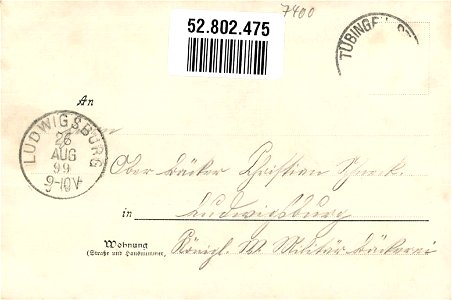 52.802.475
7400
TÜBINGEN
An
LUDWIGSBURG
26
AUG
99
9-10V
Ober bäcker Christian
in Ludwigsburg
Wohnung
(Straße und Hausnummer)
Königl. W. Militär bäckerei